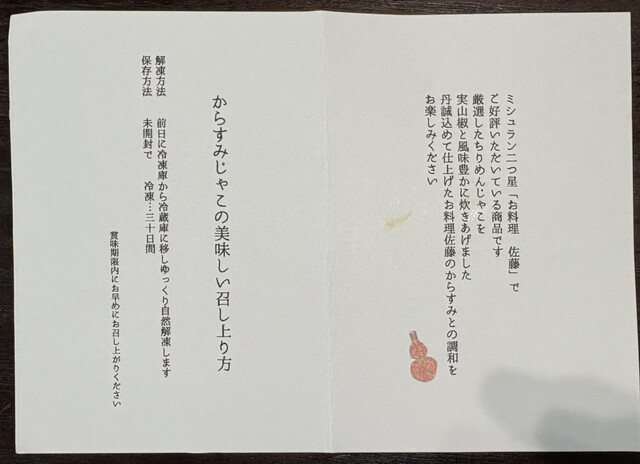 ミシュラン二つ星「お料理　佐藤」で
ご好評いただいている商品です
厳選したちりめんじゃこを
実山椒と風味豊かに炊きあげました
丹誠込めて仕上げたお料理佐藤のからすみとの調和を
お楽しみください
からすみじゃこの美味しい召し上り方
解凍方法　前日に冷凍庫から冷蔵庫に移しゆっくり自然解凍します
保存方法　未開封で　冷凍…三十日間
賞味期限内にお早めにお召し上がりください